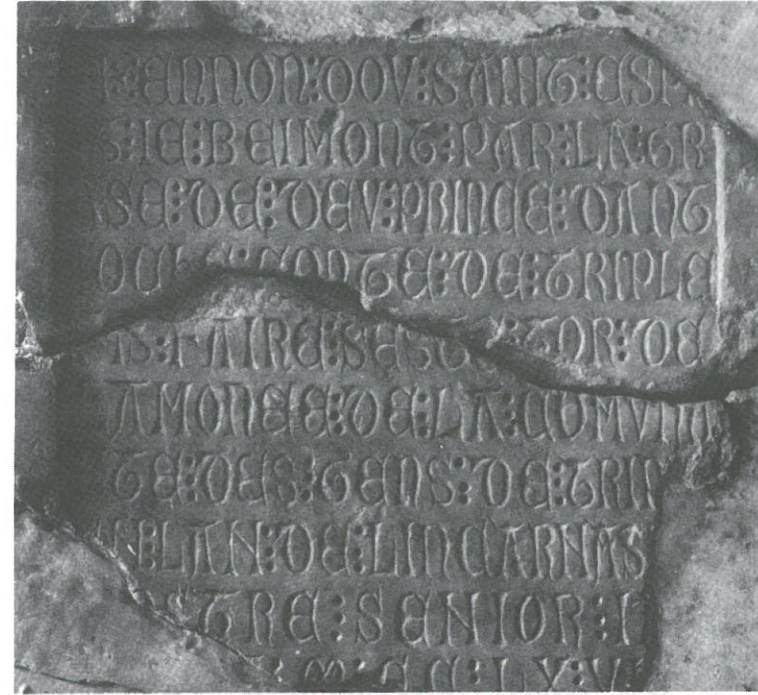 ENNON:DOV:SAINT:ESP
IE:BEIMONT:PAR:LA:GR
SE:DE:DEV:PRINCE:DANT
CONTE:DE:TRIPLE
FAIRE:SE TOR:DE
AMONEE:DE:LA:COMVNI
TE:DES:GENS:DE:TRIP
LAN:DE:LINCARNAS
STRE:SENIOR:I
M:CC:LX:V